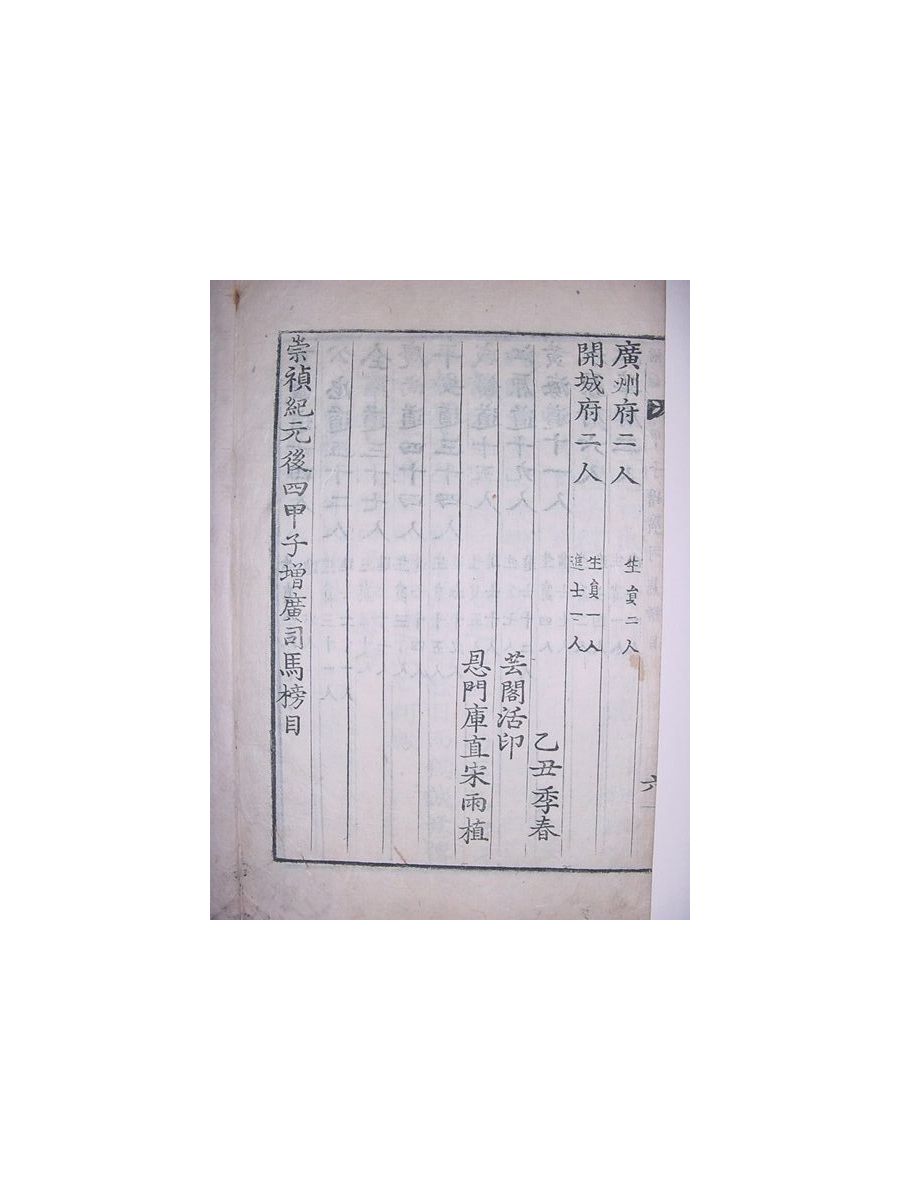 廣州府二人 生員二人
開城府二人 生員一人
進士一人
乙丑季春
芸閣活印
恩門庫直宋雨植
崇禎紀元後四甲子增廣司馬榜目
六